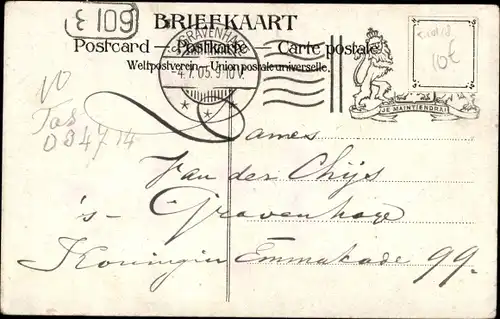 E 109
BRIEFKAART
Postcard — Postkarte — Carte postale
Weltpostverein — Union postale universelle.
'S-GRAVENHAGE
4.7.05. 9-10V.
JE MAINTIENDRAI
10€
Dames
Van der Chijs
's-Gravenhage
Koningin Emmakade 99.